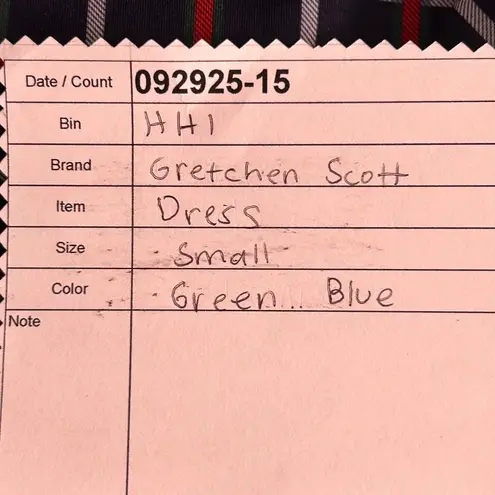 Date / Count 092925-15
Bin HH1
Brand Gretchen Scott
Item Dress
Size Small
Color Green.. Blue
Note